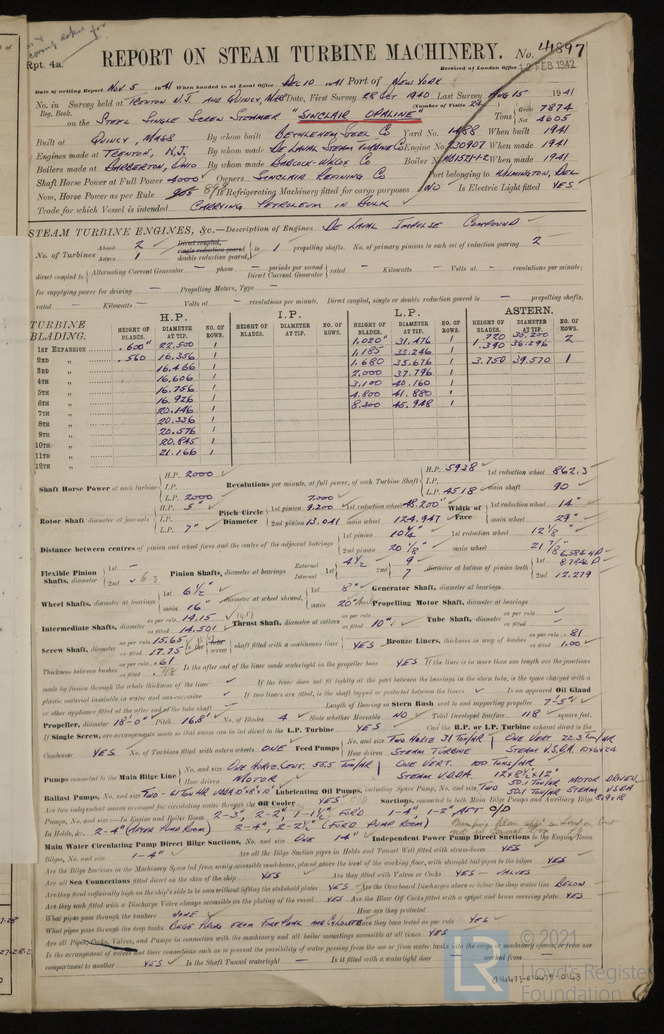 Rpt. 4a.
REPORT ON STEAM TURBINE MACHINERY. No. 41897
Received at London Office 12 FEB 1942
Date of writing Report Nov 5 1941 When handed in at Local Office Dec 10 1941 Port of New York
No. in Survey held at Trenton N.J. and Quincy, Mass Date, First Survey 28 Oct 1940 Last Survey Aug 15 1941
Reg. Book. (Number of Visits 24)
on the Steel Single Screw Steamer "Sinclair Opaline" Tons Gross 7874 Net 4605
Built at Quincy, Mass By whom built Bethlehem Steel Co Yard No. 1488 When built 1941
Engines made at Trenton, N.J. By whom made De Laval Steam Turbine Co Engine No. 230907 When made 1941
Boilers made at Barberton, Ohio By whom made Babcock-Wilcox Co Boiler No. When made 1941
Shaft Horse Power at Full Power 4000 Owners Sinclair Refining Co Port belonging to Wilmington, Del
Nom. Horse Power as per Rule Is Refrigerating Machinery fitted for cargo purposes No Is Electric Light fitted Yes
Trade for which Vessel is intended Carrying Petroleum in Bulk
STEAM TURBINE ENGINES, &c.—Description of Engines De Laval Impulse Compound
No. of Turbines Ahead 2 Astern 1 Direct coupled, single reduction geared double reduction geared to 1 propelling shafts. No. of primary pinions to each set of reduction gearing 2
direct coupled to Alternating Current Generator — phase — periods per second Direct Current Generator rated — Kilowatts — Volts at — revolutions per minute;
for supplying power for driving — Propelling Motors, Type —
rated — Kilowatts — Volts at — revolutions per minute. Direct coupled, single or double reduction geared to — propelling shafts.
TURBINE BLADING. H.P. I.P. L.P. ASTERN.
HEIGHT OF BLADES. DIAMETER AT TIP. NO. OF ROWS. HEIGHT OF BLADES. DIAMETER AT TIP. NO. OF ROWS. HEIGHT OF BLADES. DIAMETER AT TIP. NO. OF ROWS. HEIGHT OF BLADES. DIAMETER AT TIP. NO. OF ROWS.
1ST EXPANSION .600" 22.500 1 1.020" 31.476 1 1.390 36.296 2
2ND " .560 16.356 1 1.185 33.246 1
3RD " 16.466 1 1.680 35.676 1 3.750 39.570 1
4TH " 16.606 1 2.000 37.796 1
5TH " 16.756 1 3.100 40.160 1
6TH " 16.926 1 4.800 41.880 1
7TH " 20.146 1 8.300 45.948 1
8TH " 20.336 1
9TH " 20.576 1
10TH " 20.845 1
11TH " 21.166 1
12TH "
Shaft Horse Power at each turbine H.P. 2000 I.P. L.P. 2000 Revolutions per minute, at full power, of each Turbine Shaft H.P. 5938 I.P. L.P. 4518 1st reduction wheel 862.3 main shaft 90
Rotor Shaft diameter at journals H.P. 5" I.P. L.P. 7" Pitch Circle Diameter 1st pinion 7.000 9.200 2nd pinion 13.041 1st reduction wheel 48.200" main wheel 124.947 Width of Face 1st reduction wheel 14" main wheel 29"
Distance between centres of pinion and wheel faces and the centre of the adjacent bearings 1st pinion 10 1/4" 2nd pinion 20 1/8" 1st reduction wheel 12 1/8" main wheel 21 7/8"
Flexible Pinion Shafts, diameter 1st — 2nd Pinion Shafts, diameter at bearings External 4 1/2 9 Internal 7 diameter at bottom of pinion teeth 1st 2nd 12.279
Wheel Shafts, diameter at bearings 1st 6 1/2" main 16" diameter at wheel shroud, 1st 8" main 20" Generator Shaft, diameter at bearings Propelling Motor Shaft, diameter at bearings
Intermediate Shafts, diameter as per rule 14.15 as fitted 14.501 Thrust Shaft, diameter at collars as fitted 10" Tube Shaft, diameter as per rule as fitted
Screw Shaft, diameter as per rule 15.65 as fitted 17.75 Is the screw shaft fitted with a continuous liner Yes Bronze Liners, thickness in way of bushes as per rule .81 as fitted 1.00
Thickness between bushes as per rule .61 as fitted Is the after end of the liner made watertight in the propeller boss Yes If the liner is in more than one length are the junctions
made by fusion through the whole thickness of the liner If the liner does not fit tightly at the part between the bearings in the stern tube, is the space charged with a
plastic material insoluble in water and non-corrosive If two liners are fitted, is the shaft lapped or protected between the liners Is an approved Oil Gland
or other appliance fitted at the after end of the tube shaft Length of Bearing in Stern Bush next to and supporting propeller 7'-5"
Propeller, diameter 18'-0" Pitch 16.8' No. of Blades 4 State whether Moveable No Total Developed Surface 118 square feet.
If Single Screw, are arrangements made so that steam can be led direct to the L.P. Turbine Yes Can the H.P. or I.P. Turbine exhaust direct to the
Condenser Yes No. of Turbines fitted with astern wheels One Feed Pumps No. and size Two Horiz 31 Ton/Hr One Vert 22.3 Ton/Hr How driven Steam Turbine Steam V.S.D.A. 10x6x24
Pumps connected to the Main Bilge Line No. and size One Horiz. Cent. 565 Ton/Hr One Vert. 100 Tons/Hr How driven Motor Steam V.D.D.A. 12x8½x12"
Ballast Pumps, No. and size Two - Lubricating Oil Pumps, including Spare Pump, No. and size Two 50.1 Ton/Hr Motor Driven 50.1 Ton/Hr Steam V.S.D.A. 8x9x18
Are two independent means arranged for circulating water through the Oil Cooler Yes Suctions, connected to both Main Bilge Pumps and Auxiliary Bilge
Pumps, No. and size:—In Engine and Boiler Room 2-3", 2-2", 1-1½" Ford 1-4" 1-2" Aft O/D
In Holds, &c. 2-4" (After Pump Room) 2-4", 2-2½" (Ford Pump Room)
Main Water Circulating Pump Direct Bilge Suctions, No. and size One 14" Independent Power Pump Direct Suctions to the Engine Room
Bilges, No. and size 1-4" Are all the Bilge Suction pipes in Holds and Tunnel Well fitted with strum-boxes Yes
Are the Bilge Suctions in the Machinery Space led from easily accessible mud-boxes, placed above the level of the working floor, with straight tail pipes to the bilges Yes
Are all Sea Connections fitted direct on the skin of the ship Yes Are they fitted with Valves or Cocks Yes - Valves
Are they fixed sufficiently high on the ship's side to be seen without lifting the stokehold plates Yes Are the Overboard Discharges above or below the deep water line Below
Are they each fitted with a Discharge Valve always accessible on the plating of the vessel Yes Are the Blow Off Cocks fitted with a spigot and brass covering plate Yes
What pipes pass through the bunkers None How are they protected
What pipes pass through the deep tanks Have they been tested as per rule Yes
Are all Pipes, Cocks, Valves, and Pumps in connection with the machinery and all boiler mountings accessible at all times Yes
Is the arrangement of valves and their connections such as to prevent the possibility of water passing from the sea or from water tanks into the cargo or machinery spaces, or from one
compartment to another Yes Is the Shaft Tunnel watertight — Is it fitted with a watertight door — worked from —
© 2021
Lloyd's Register
Foundation